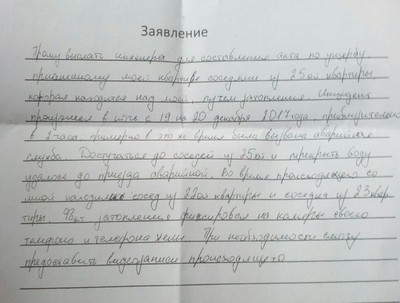 Заявление
Прошу выслать инженера для составления акта по ущербу
причинённому моей квартире соседями из 25ой квартиры,
которая находится над моей, путём затопления. Инцидент
произошел в ночь с 19 на 20 декабря 2017 года, приблизительно
в 2 часа. Примерно в это же время была вызвана аварийная
служба. Достучаться до соседей из 25ой и перекрыть воду
удалось до приезда аварийной. Во время происходящего со
мной находились сосед из 22ой квартиры и соседка из 23 квар-
тиры, факт затопления фиксировал на камеры своего
телефона и телефона жены. При необходимости смогу
предоставить видеозаписи происходящего